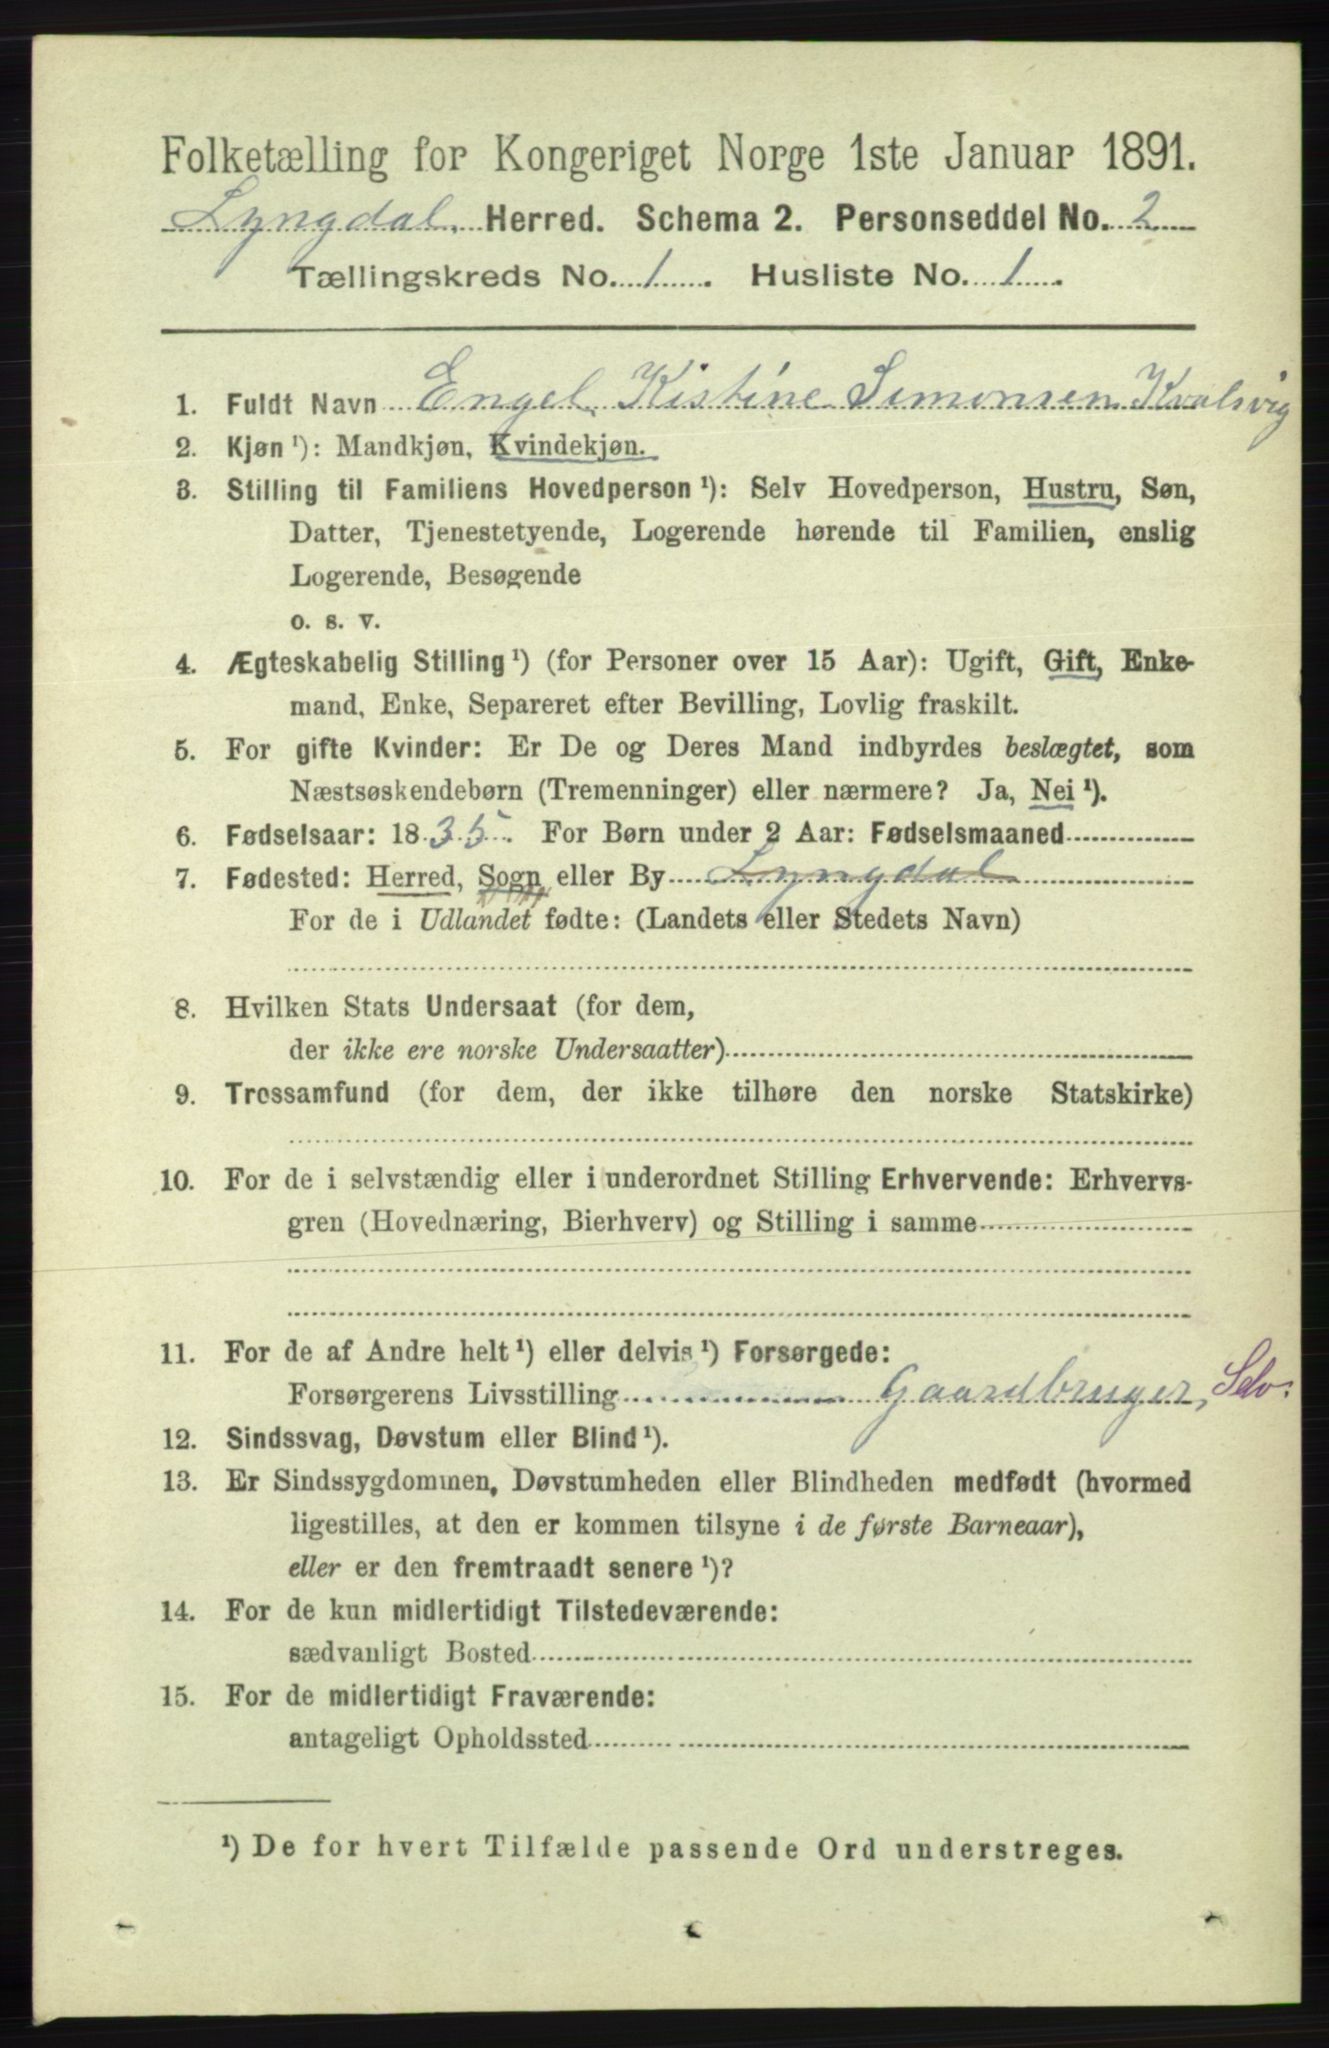 Folketælling for Kongeriget Norge 1ste Januar 1891.
Lyngdal. Herred. Schema 2. Personseddel No. 2
Tællingskreds No. 1. Husliste No. 1.
1. Fuldt Navn Engel Kistine Simonsen Kvalsvig
2. Kjøn ¹): Mandkjøn, Kvindekjøn.
3. Stilling til Familiens Hovedperson ¹): Selv Hovedperson, Hustru, Søn,
Datter, Tjenestetyende, Logerende hørende til Familien, enslig
Logerende, Besøgende
o. s. v.
4. Ægteskabelig Stilling ¹) (for Personer over 15 Aar): Ugift, Gift, Enke-
mand, Enke, Separeret efter Bevilling, Lovlig fraskilt.
5. For gifte Kvinder: Er De og Deres Mand indbyrdes beslægtet, som
Næstsøskendebørn (Tremenninger) eller nærmere? Ja, Nei ¹).
6. Fødselsaar: 1835. For Børn under 2 Aar: Fødselsmaaned
7. Fødested: Herred, Sogn eller By Lyngdal
For de i Udlandet fødte: (Landets eller Stedets Navn)
8. Hvilken Stats Undersaat (for dem,
der ikke ere norske Undersaatter)
9. Trossamfund (for dem, der ikke tilhøre den norske Statskirke)
10. For de i selvstændig eller i underordnet Stilling Erhvervende: Erhvervs-
gren (Hovednæring, Bierhverv) og Stilling i samme
11. For de af Andre helt ¹) eller delvis ¹) Forsørgede:
Forsørgerens Livsstilling Gaardbruger, Selv.
12. Sindssvag, Døvstum eller Blind ¹).
13. Er Sindssygdommen, Døvstumheden eller Blindheden medfødt (hvormed
ligestilles, at den er kommen tilsyne i de første Barneaar),
eller er den fremtraadt senere ¹)?
14. For de kun midlertidigt Tilstedeværende:
sædvanligt Bosted
15. For de midlertidigt Fraværende:
antageligt Opholdssted
¹) De for hvert Tilfælde passende Ord understreges.